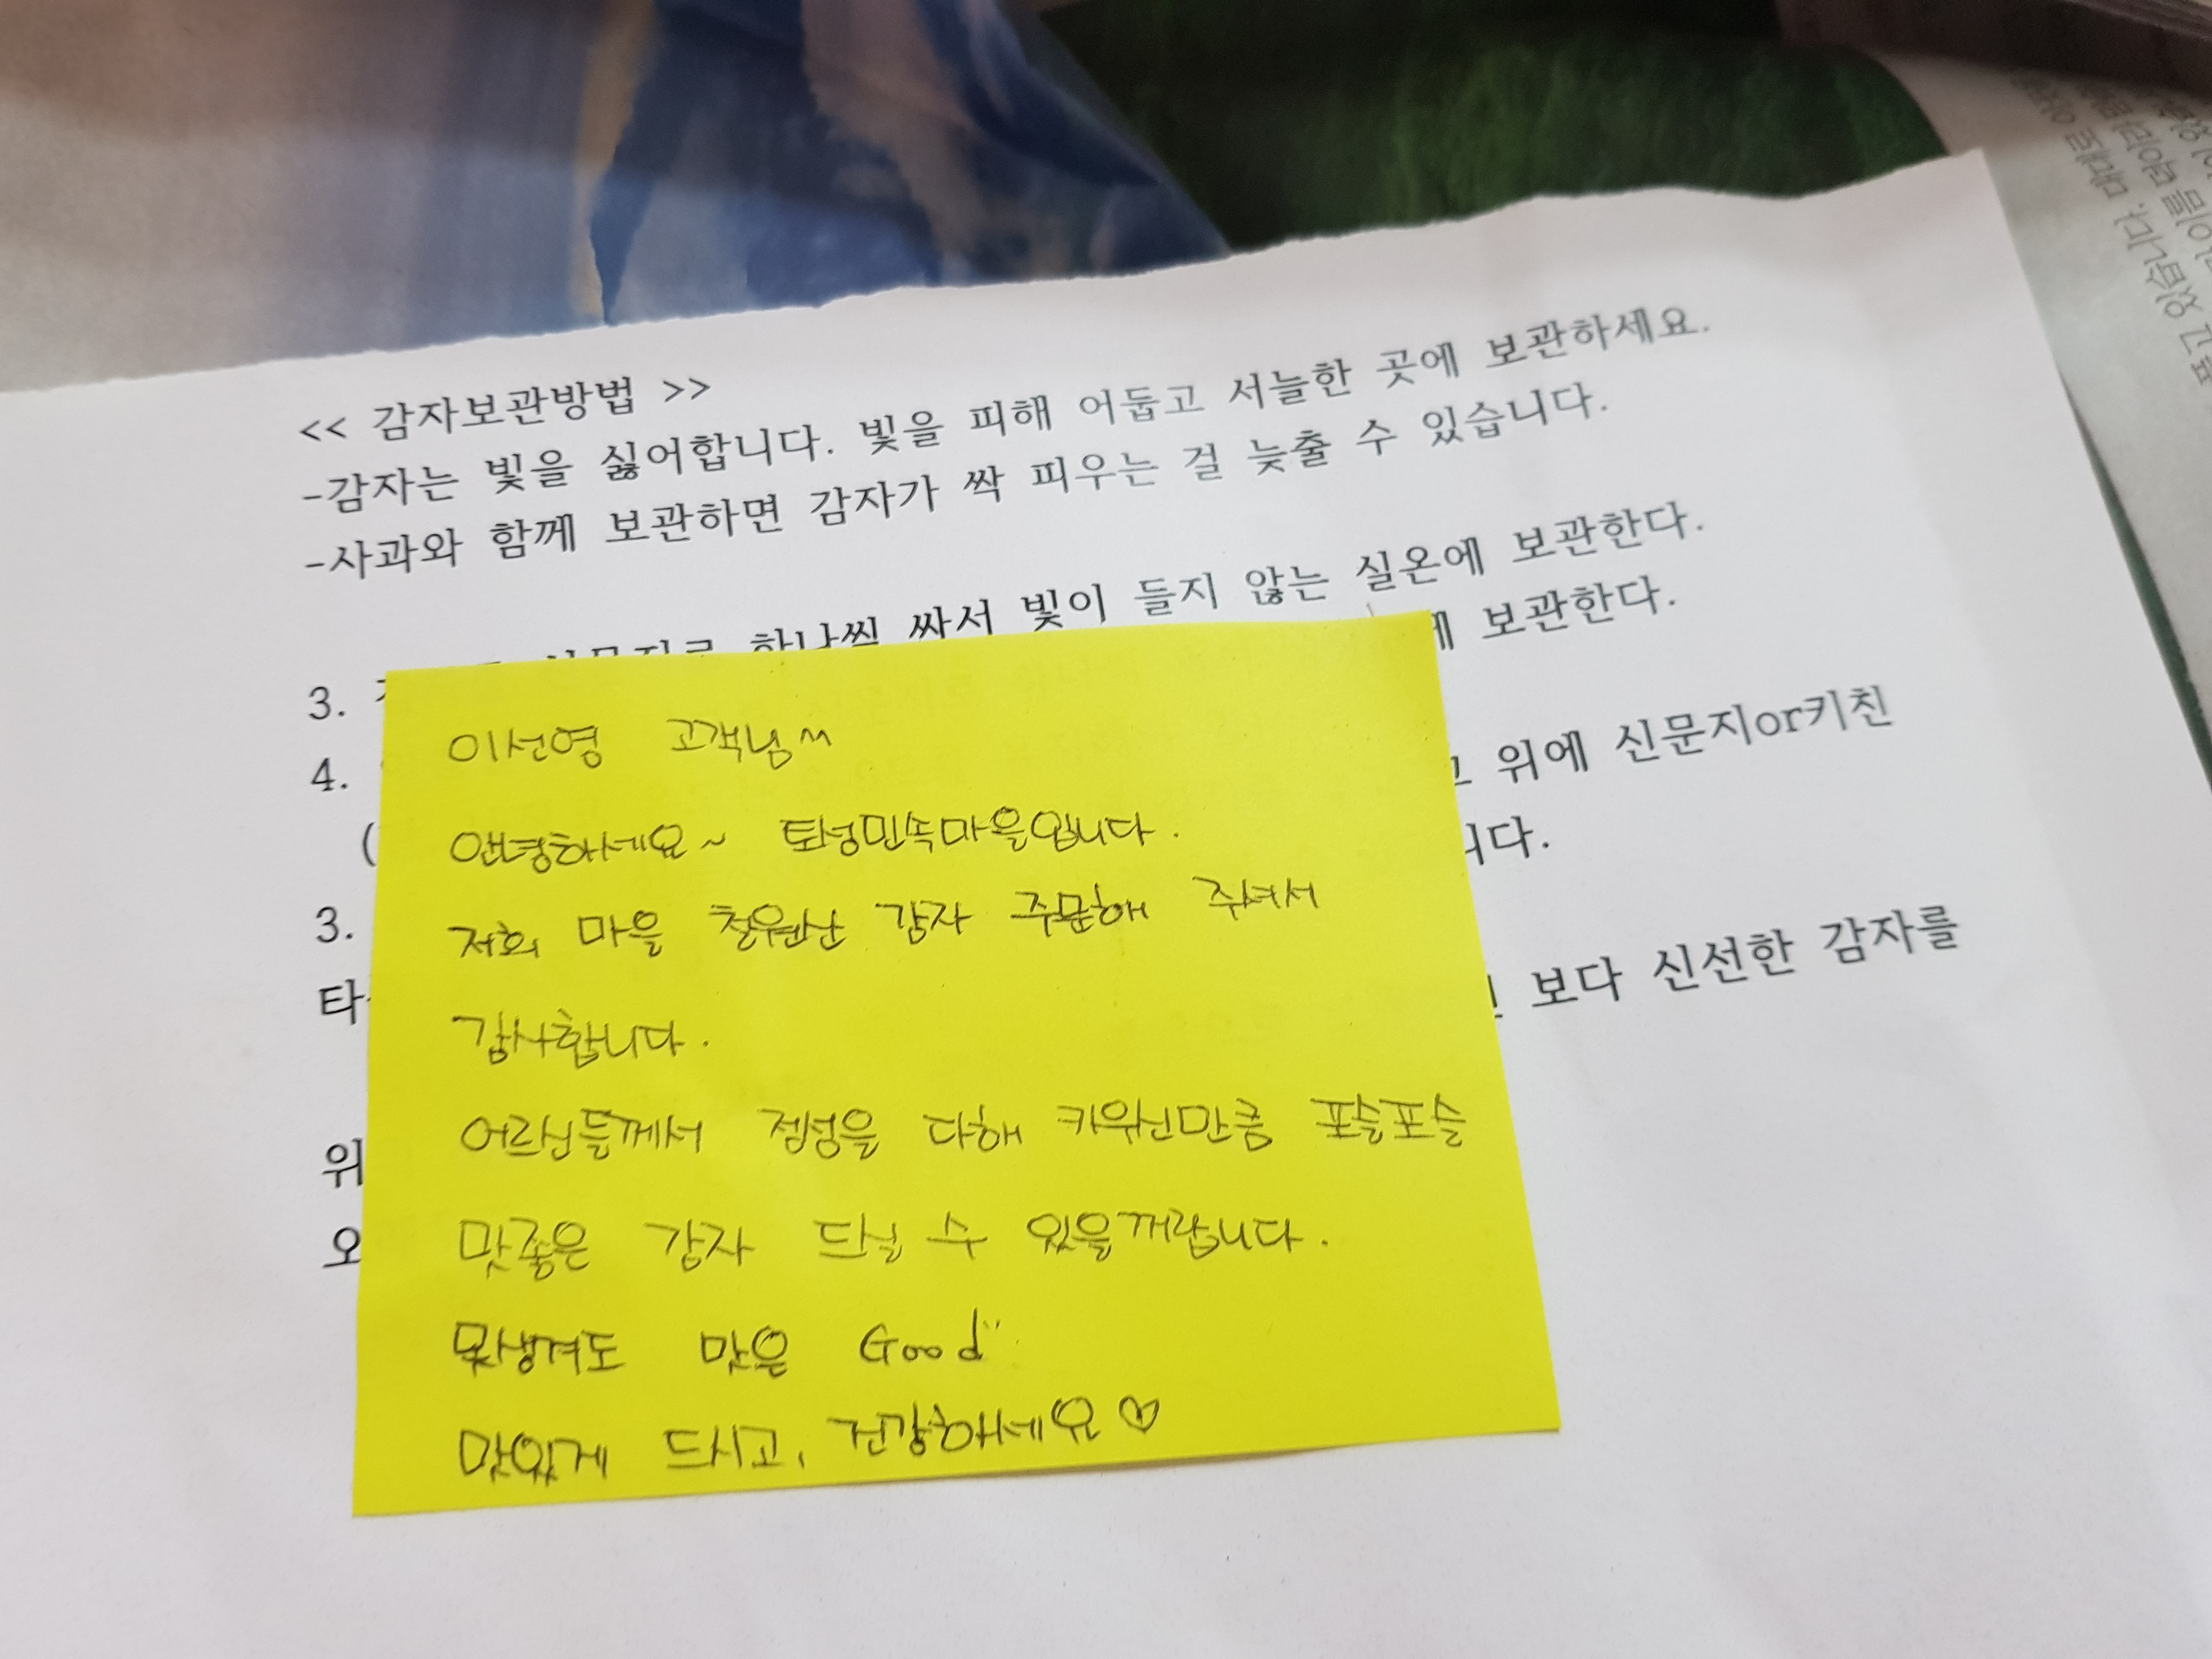 << 감자보관방법 >>
-감자는 빛을 싫어합니다. 빛을 피해 어둡고 서늘한 곳에 보관하세요.
-사과와 함께 보관하면 감자가 싹 피우는 걸 늦출 수 있습니다.
3. 하나씩 싸서 빛이 들지 않는 실온에 보관한다.
4. 보관한다.
( 위에 신문지or키친
니다.
3.
타 보다 신선한 감자를
위
오
이선영 고객님^^
안녕하세요~ 토성민속마을입니다.
저희 마을 철원산 감자 주문해 주셔서
감사합니다.
어르신들께서 정성을 다해 키워신만큼 포슬포슬
맛좋은 감자 드실 수 있을꺼랍니다.
못생겨도 맛은 Good
맛있게 드시고, 건강하세요♡